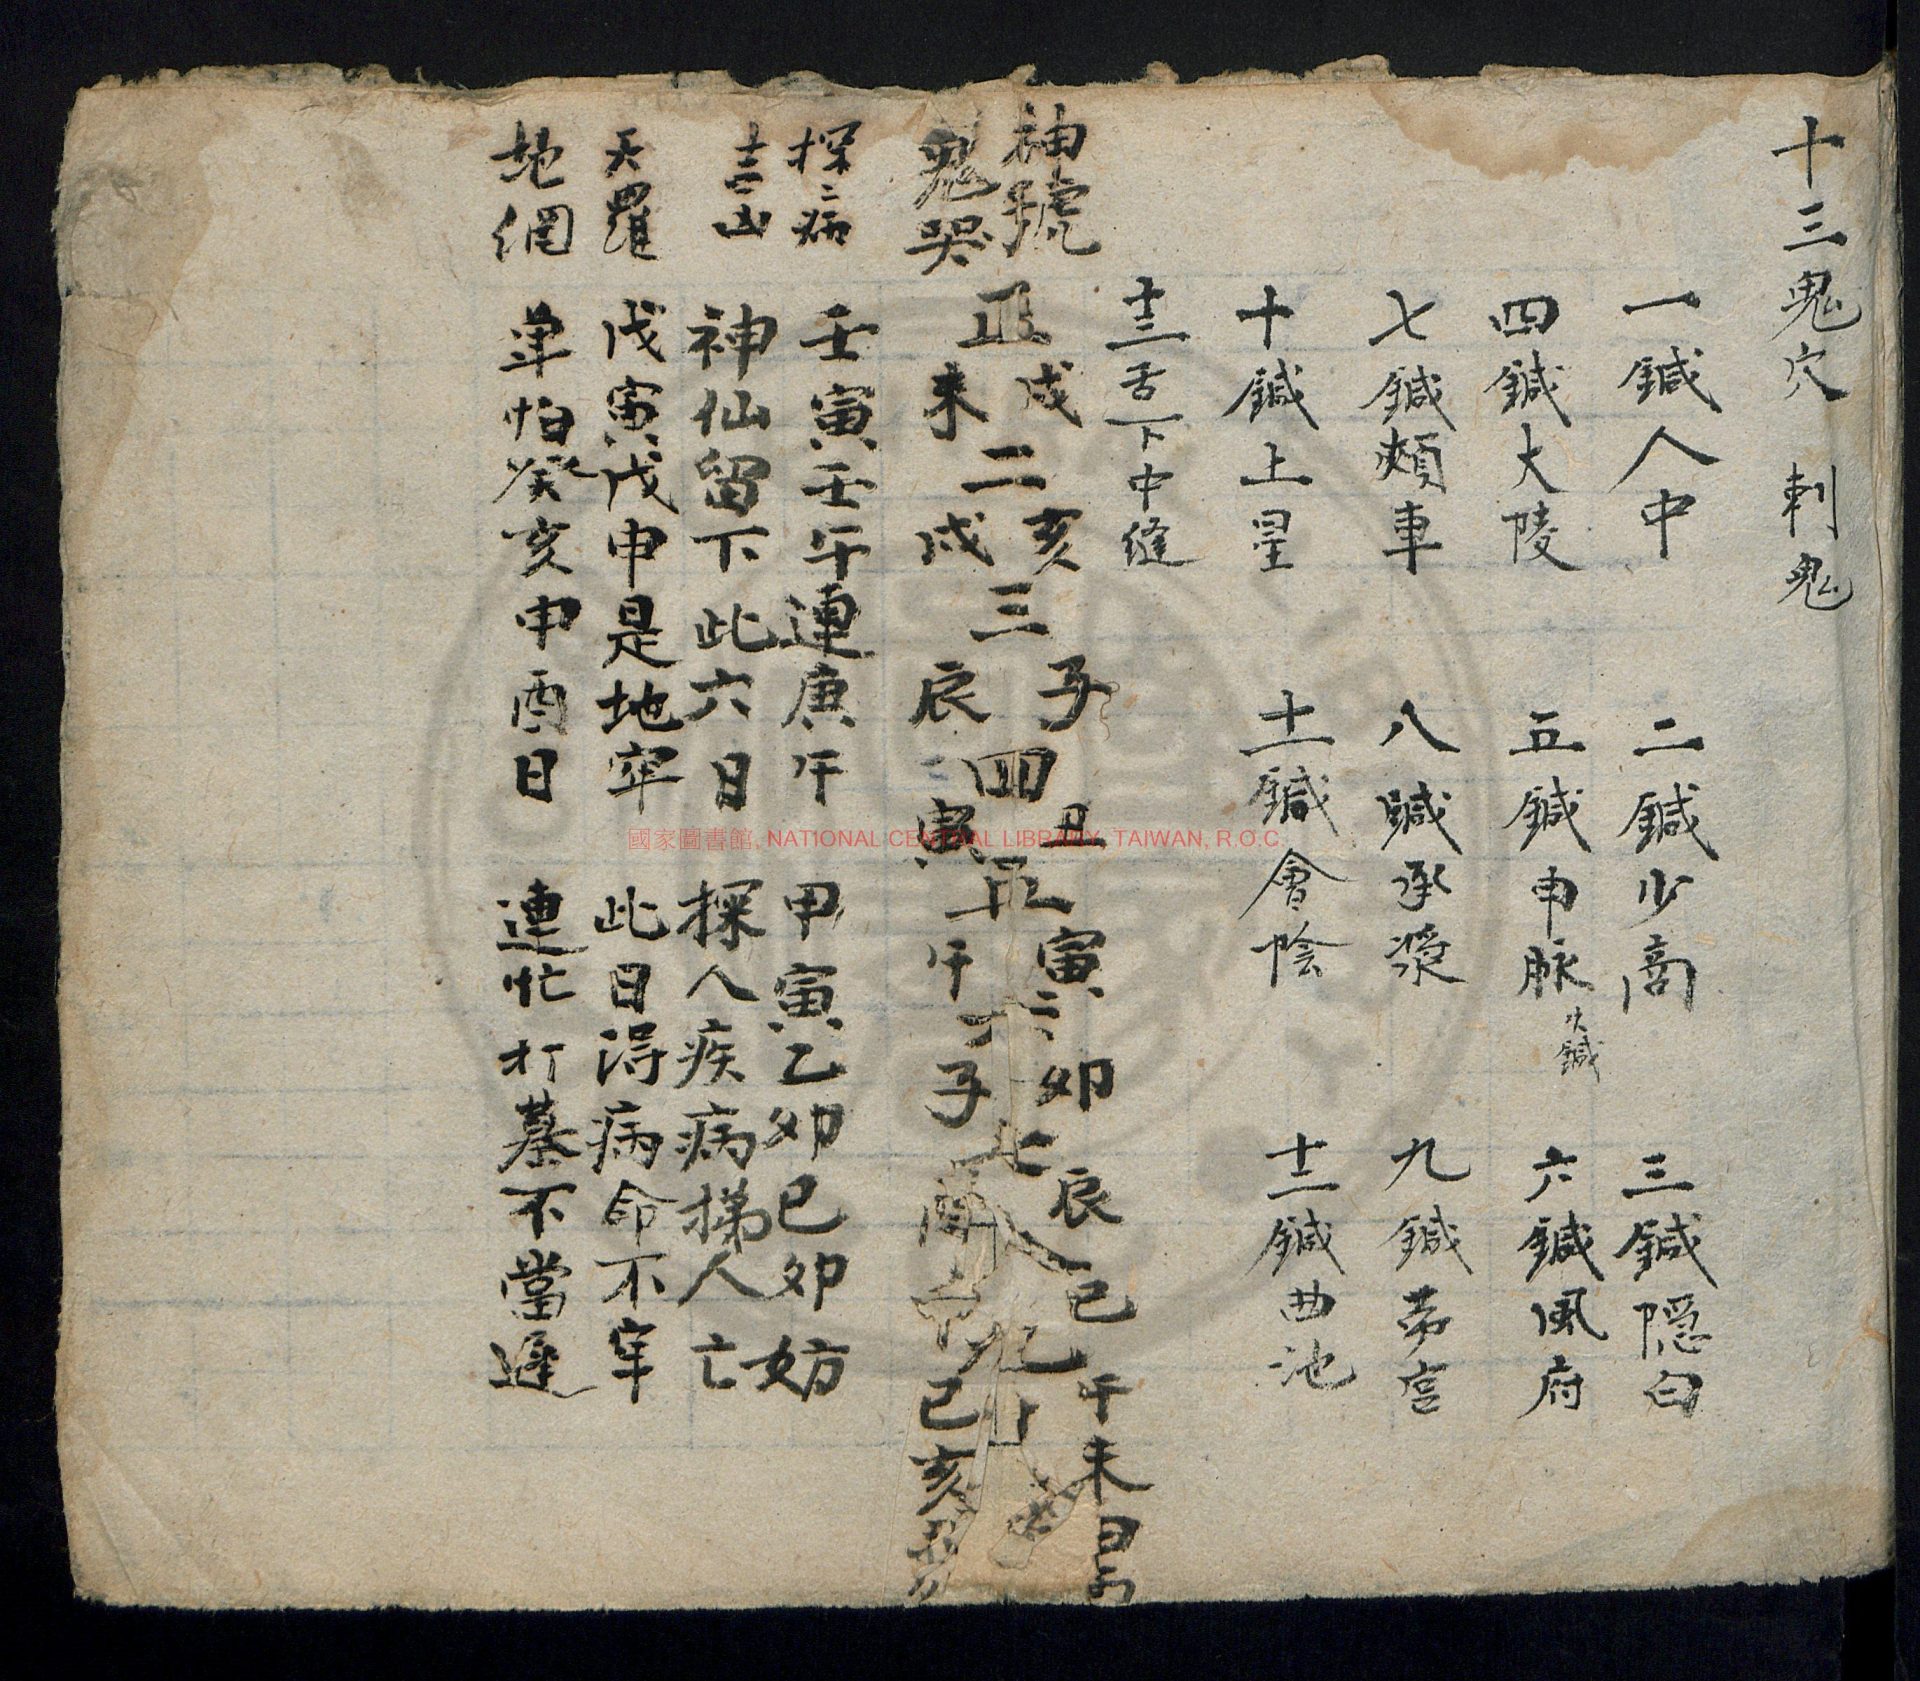 十三鬼穴 刺鬼
一鍼人中 二鍼少商 三鍼隱白
四鍼大陵 五鍼申脉 火鍼 六鍼風府
七鍼頰車 八鍼承漿 九鍼劳宮
十鍼上星 十一鍼會陰 十二鍼曲池
十三舌下中縫
神號 戌 亥 子 丑 寅 卯 辰 巳 午 未
正 二 三 四 五 六 七 八 九 十
鬼哭 未 戌 辰 寅 午 子 酉 申 巳 亥 丑
探病 壬寅壬午連庚午 甲寅乙卯己卯妨
凶 神仙留下此六日 探人疾病梯人亡
天羅 戊寅戊申是地牢 此日得病命不牢
地網 单怕癸亥申酉日 連忙打墓不當遲
國家圖書館, NATIONAL CENTRAL LIBRARY, TAIWAN, R.O.C.